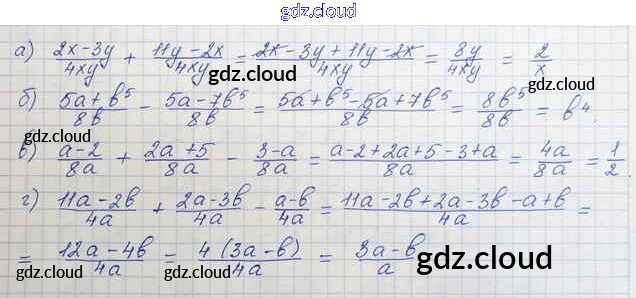 gdz.cloud
а) (2x-3y)/(4xy) + (11y-2x)/(4xy) = (2x-3y+11y-2x)/(4xy) = 8y/(4xy) = 2/x
gdz.cloud gdz.cloud
б) (5a+b⁵)/(8b) - (5a-7b⁵)/(8b) = (5a+b⁵-5a+7b⁵)/(8b) = 8b⁵/(8b) = b⁴.
gdz.cloud gdz.cloud
в) (a-2)/(8a) + (2a+5)/(8a) - (3-a)/(8a) = (a-2+2a+5-3+a)/(8a) = 4a/(8a) = 1/2.
gdz.cloud
г) (11a-2b)/(4a) + (2a-3b)/(4a) - (a-b)/(4a) = (11a-2b+2a-3b-a+b)/(4a) =
gdz.cloud
= (12a-4b)/(4a) = (4(3a-b))/(4a) = (3a-b)/a
gdz.cloud gdz.cloud gdz.cloud